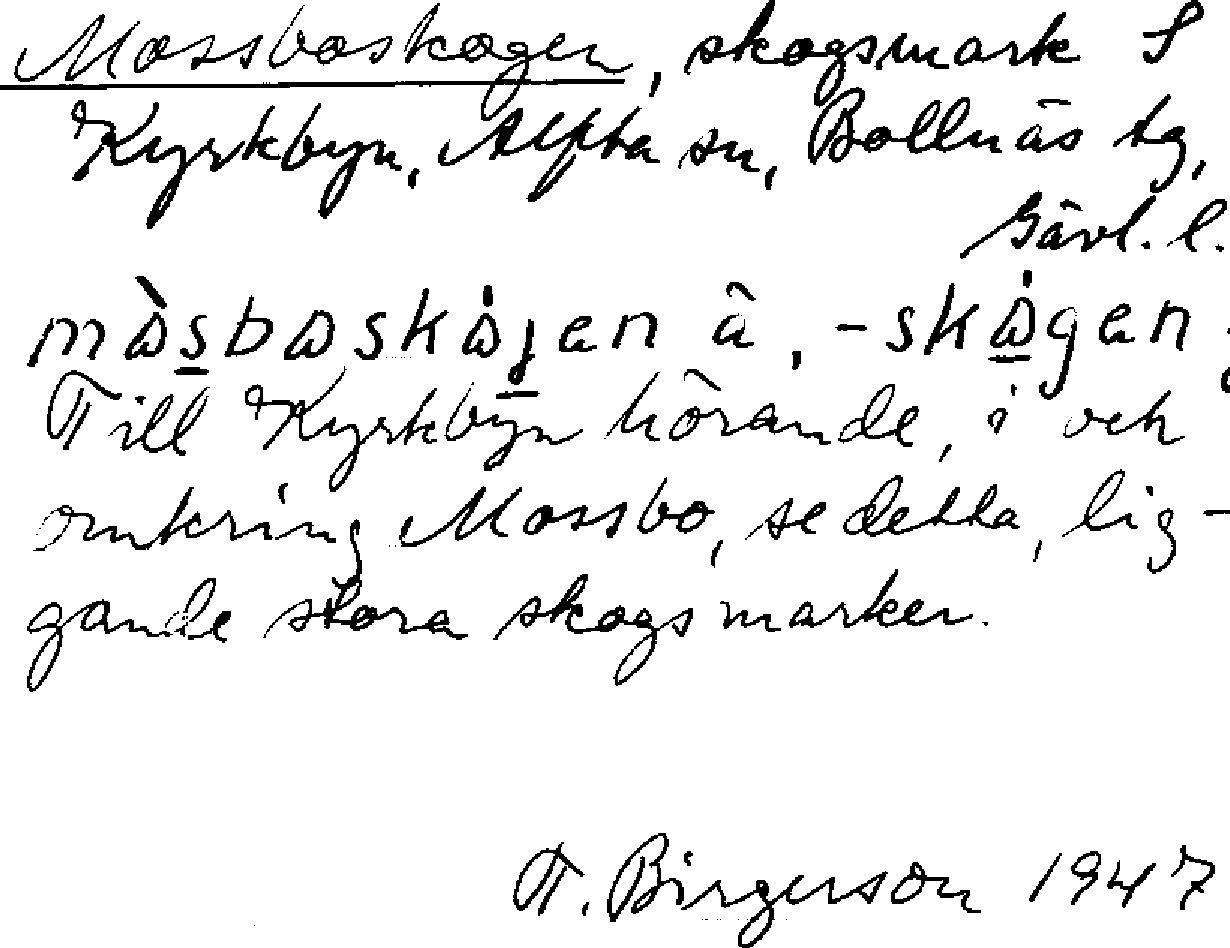 Mossboskogen, skogsmark S
Kyrkbyn, Alfta sn, Bollnäs tg,
Gävl. l.
Till Kyrkbyn hörande, i och
omkring Mossbo, se detta, lig-
gande stora skogsmarker.
T. Birgerson 1947